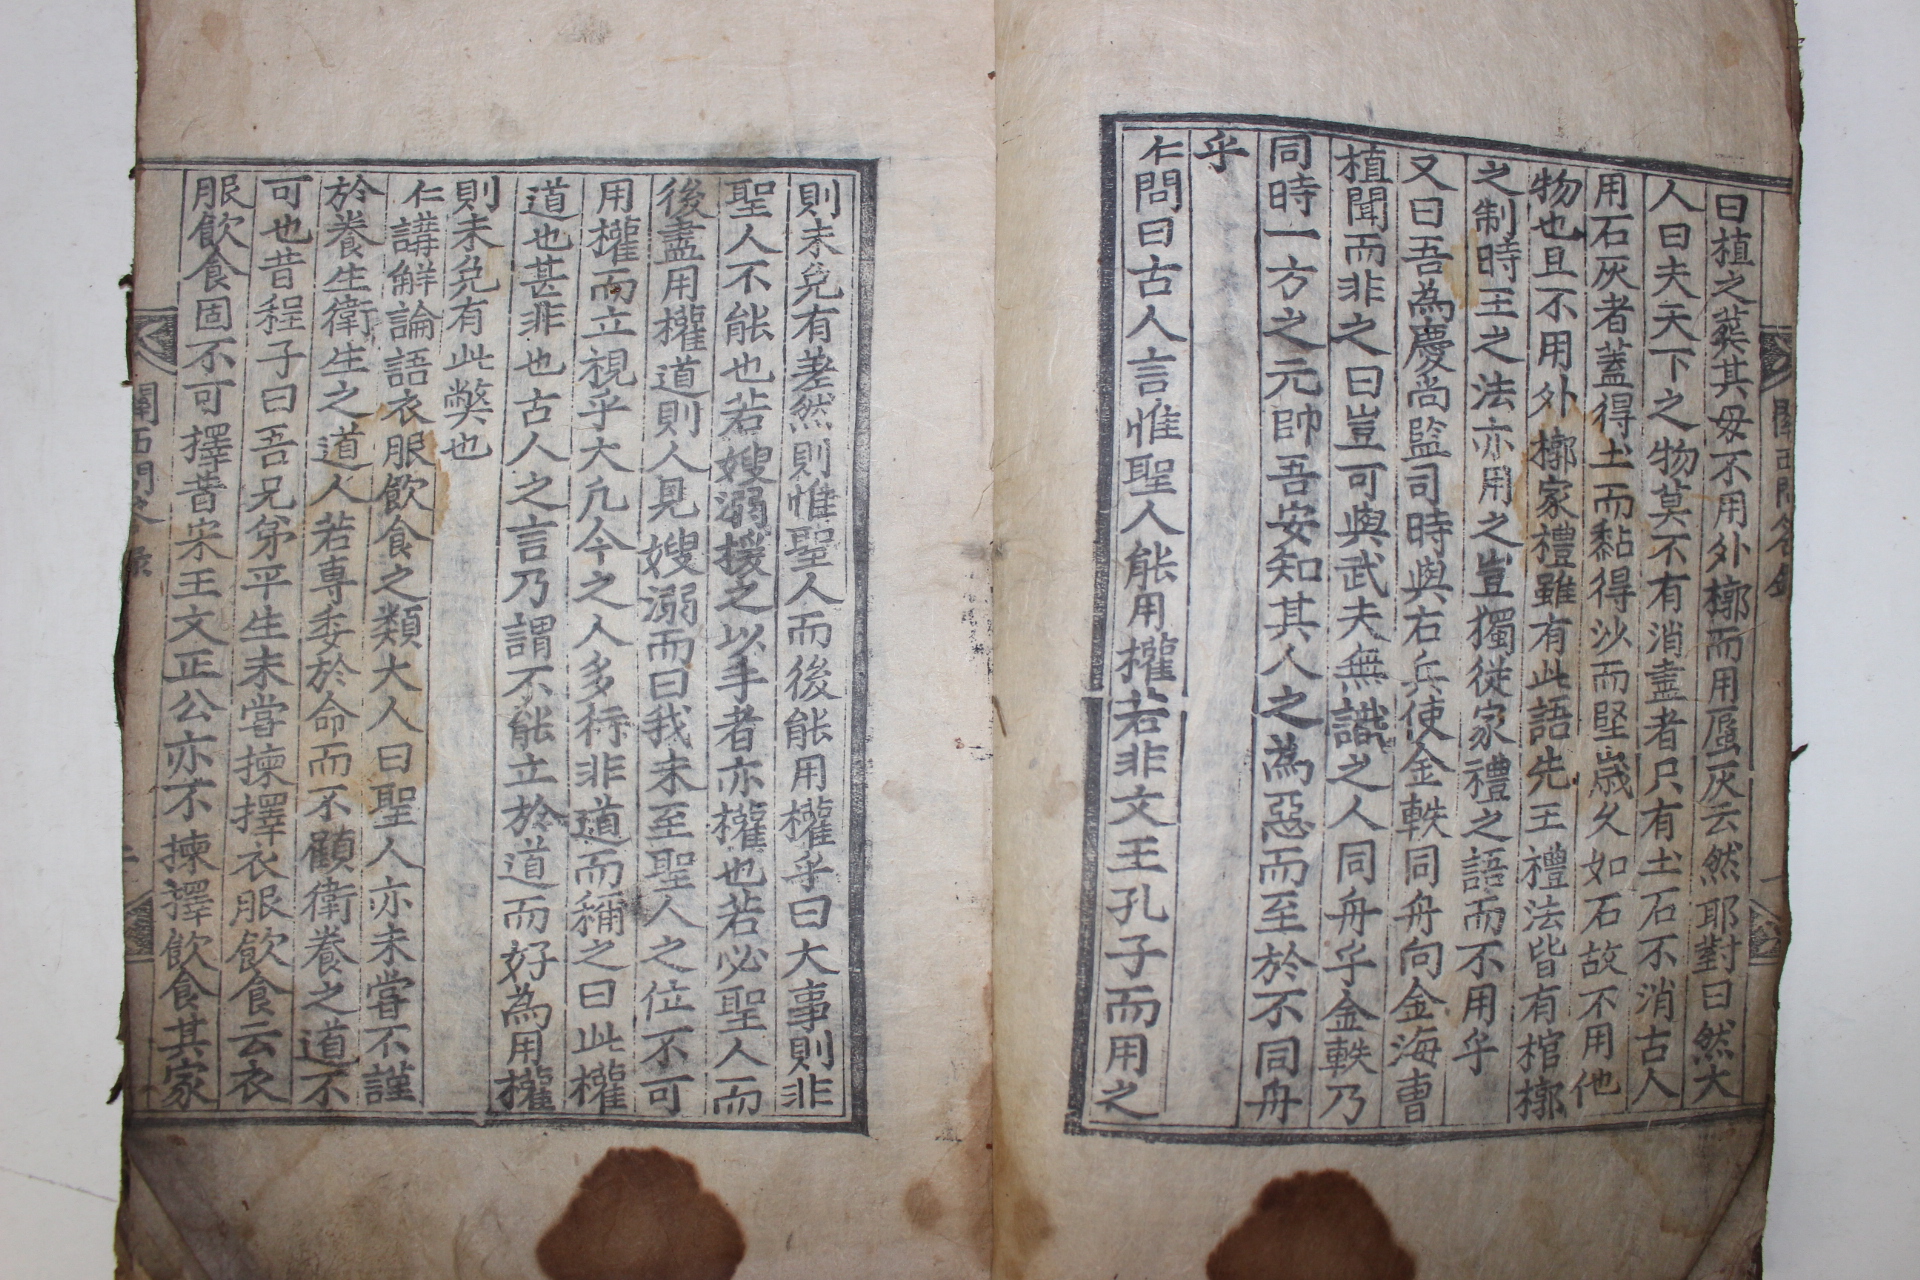 曰植之葬其母不用外槨而用蜃灰云然耶對曰然大
人曰夫天下之物莫不有消盡者只有土石不消古人
用石灰者蓋得土而黏得沙而堅歲久如石故不用他
物也且不用外槨家禮雖有此語先王禮法皆有棺槨
之制時王之法亦用之豈獨從家禮之語而不用乎
又曰吾為慶尚監司時與右兵使金軼同舟向金海曺
植聞而非之曰豈可與武夫無識之人同舟乎金軼乃
同時一方之元帥吾安知其人之為惡而至於不同舟
乎
仁問曰古人言惟聖人能用權若非文王孔子而用之
關西問答錄
則未免有差然則惟聖人而後能用權乎曰大事則非
聖人不能也若嫂溺援之以手者亦權也若必聖人而
後盡用權道則人見嫂溺而曰我未至聖人之位不可
用權而立視乎大凡今之人多行非道而稱之曰此權
道也甚非也古人之言乃謂不能立於道而好為用權
則未免有此弊也
仁講解論語衣服飲食之類大人曰聖人亦未嘗不謹
於養生衛生之道人若專委於命而不顧衛養之道不
可也昔程子曰吾兄弟平生未嘗揀擇衣服飲食云衣
服飲食固不可擇昔宋王文正公亦不揀擇飲食其家
關西問答錄